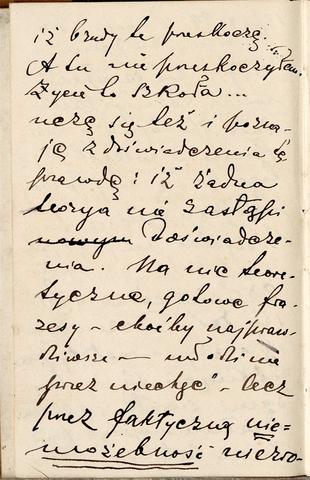 iż brudy te przeskoczę.
A tu nie przeskoczyłam.
Życie to szkoła...
uczę się też i pozna-
ję z doświadczenia tę
prawdę: iż żadna
teorya nie zastąpi
doświadcze-
nia. Na nic teore-
tyczne, gotowe fra-
zesy – choćby najpraw-
dziwsze –
przez niechęć – lecz
przez faktyczną nie=
możebność